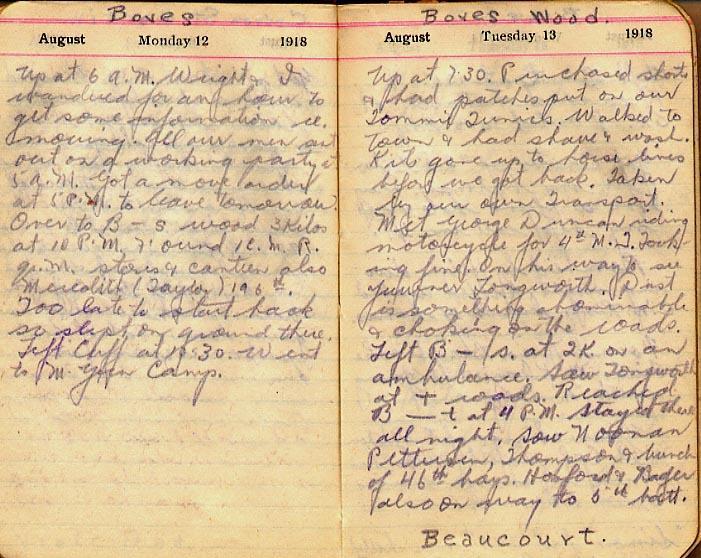 Boves
August Monday 12 1918
Up at 6 A.M. Wright & I
wandered for an hour to
get some information re.
moving. All our men sent
out on a working party at
5 A.M. Got a move order
at 5 P.M. to leave tomorrow.
Over to B - s wood 3 Kilos
at 10 P.M. Found 1 C. M. R.
Q.M. stores & canteen also
Meredith (Taylor) 196th.
Too late to start back
so slept on ground there.
Left Cliff at 9.30. Went
to M. Gun Camp.
Boves Wood.
August Tuesday 13 1918
Up at 7.30. Purchased shorts
& had patches put on our
Tommie Tunics. Walked to
town & had shave & wash.
Kits gone up to horse lines
before we got back. Taken
by our own Transport.
Met George Duncan riding
motorcycle for 4th M.T. Look-
ing fine. On his way to see
Longworth. Dust
is something abominable
& choking on the roads.
Left B - s. at 2K on an
ambulance. Saw Longworth
at + roads. Reached
B — t at 4 P.M. stayed there
all night. Saw Noonan
Petterson, Thompson & bunch
of 46th boys. Hosford &
also on way to 5th batt.
Beaucourt.